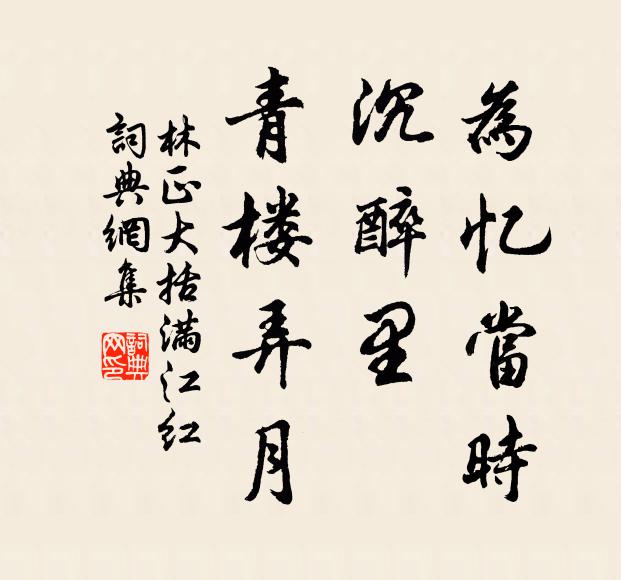 為忆當時
沉醉里
青楼弄月
林正大括满江红
詞典網集
詞典
网印